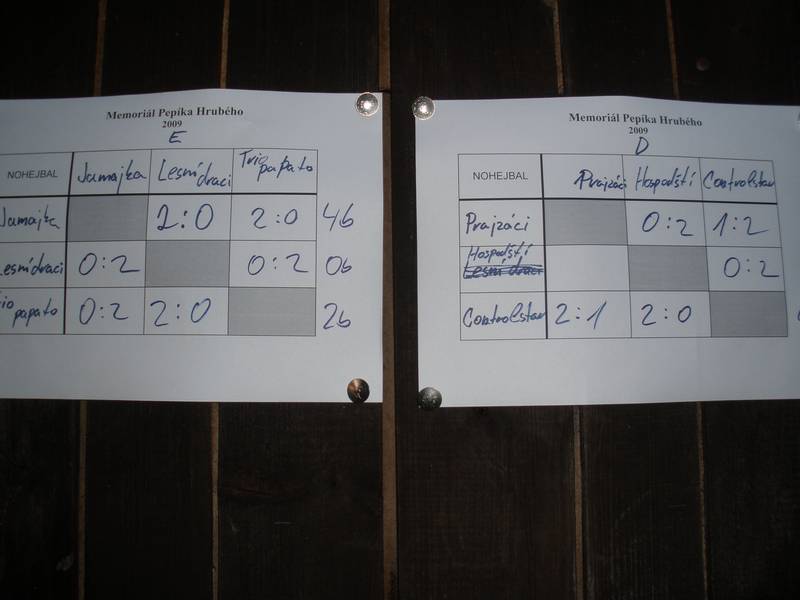 Memoriál Pepíka Hrubého
2009
E
NOHEJBAL Jamajka Lesní draci Trio papato
Jamajka 2:0 2:0 4b
Lesní draci 0:2 0:2 0b
Trio papato 0:2 2:0 2b
Memoriál Pepíka Hrubého
2009
D
NOHEJBAL Prajzáci Hospodští Controlstav
Prajzáci 0:2 1:2
Hospodští
Lesní draci 0:2
Controlstav 2:1 2:0